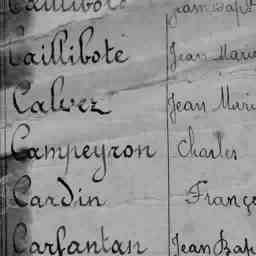 Caillibote Jean Bapt
Caillibote Jean Marie
Calvez Jean Mari
Campeyron Charles
Cardin Franço
Carfantan Jean Bap